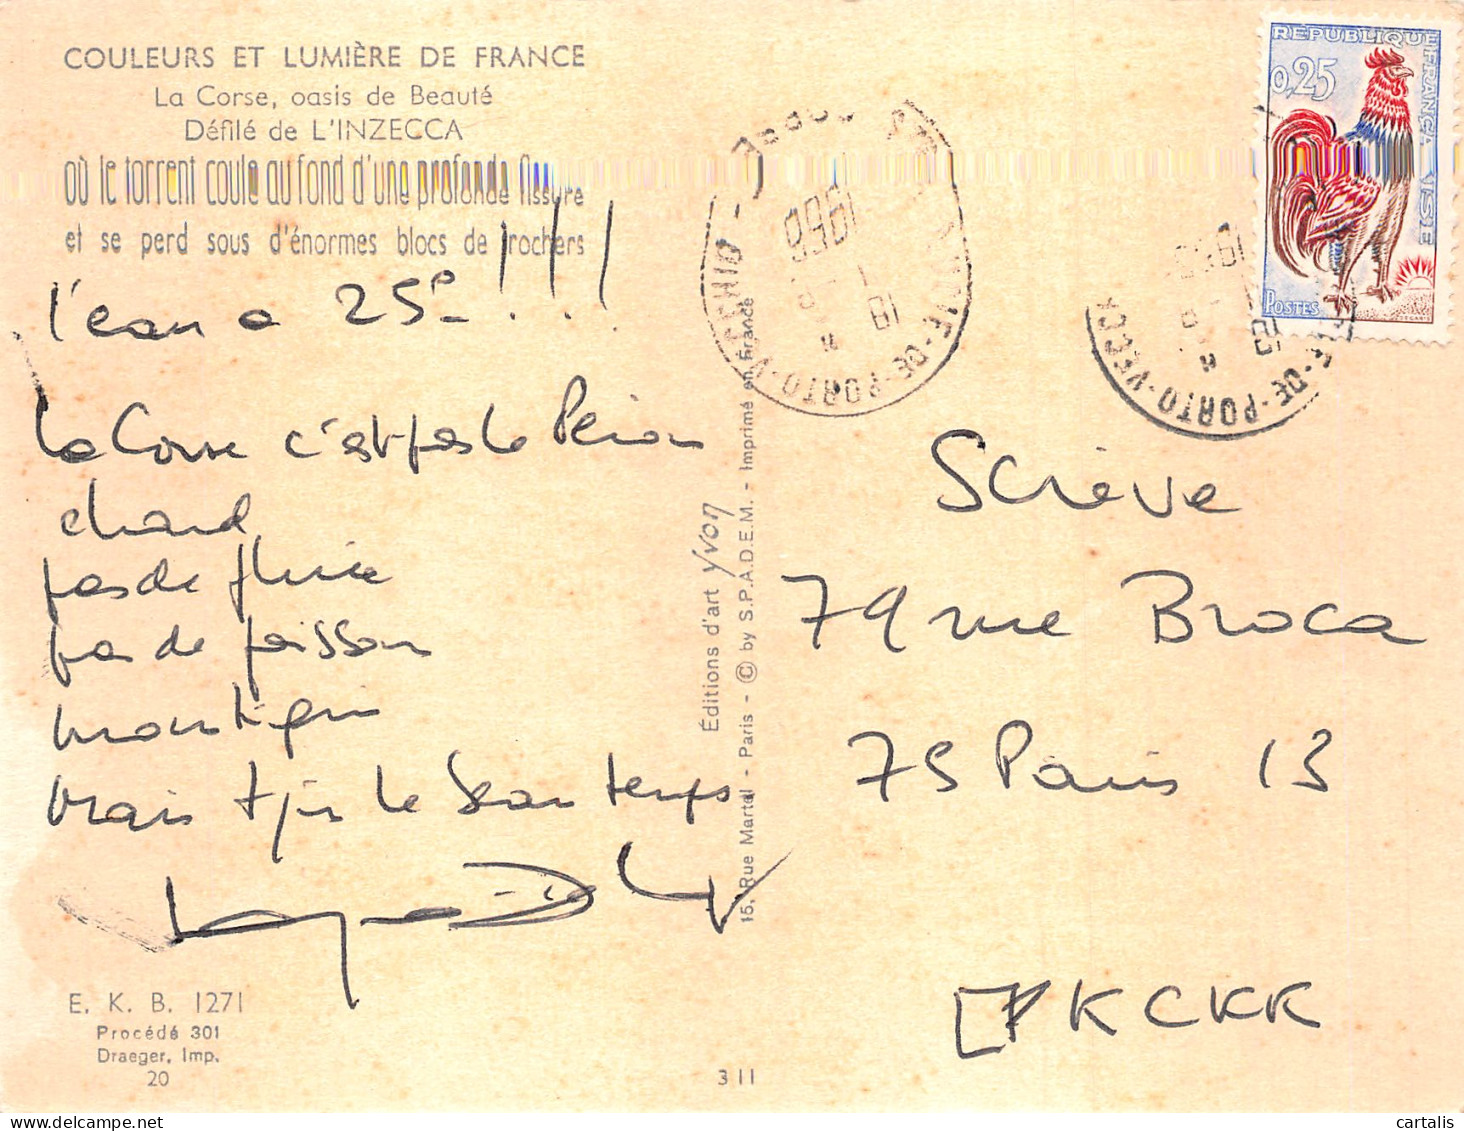 COULEURS ET LUMIÈRE DE FRANCE
La Corse, oasis de Beauté
Défilé de L'INZECCA
où le torrent coule au fond d'une profonde fissure
et se perd sous d'énormes blocs de rochers
l'eau a 25° !!!
La Corse c'est pas le Pérou
chaud
pas de pluie
pas de poisson
mais le temps
E. K. B. 1271
Procédé 301
Draeger, Imp.
20
311
Éditions d'art Yvon
15, Rue Martel - Paris - © by S.P.A.D.E.M. - Imprimé en France
RÉPUBLIQUE FRANÇAISE
0,25
POSTES
DE-PORTO-VECCHIO
1966
DE-PORTO-VECCHIO
Scrève
79 rue Broca
75 Paris 13
KCKK
cartalis